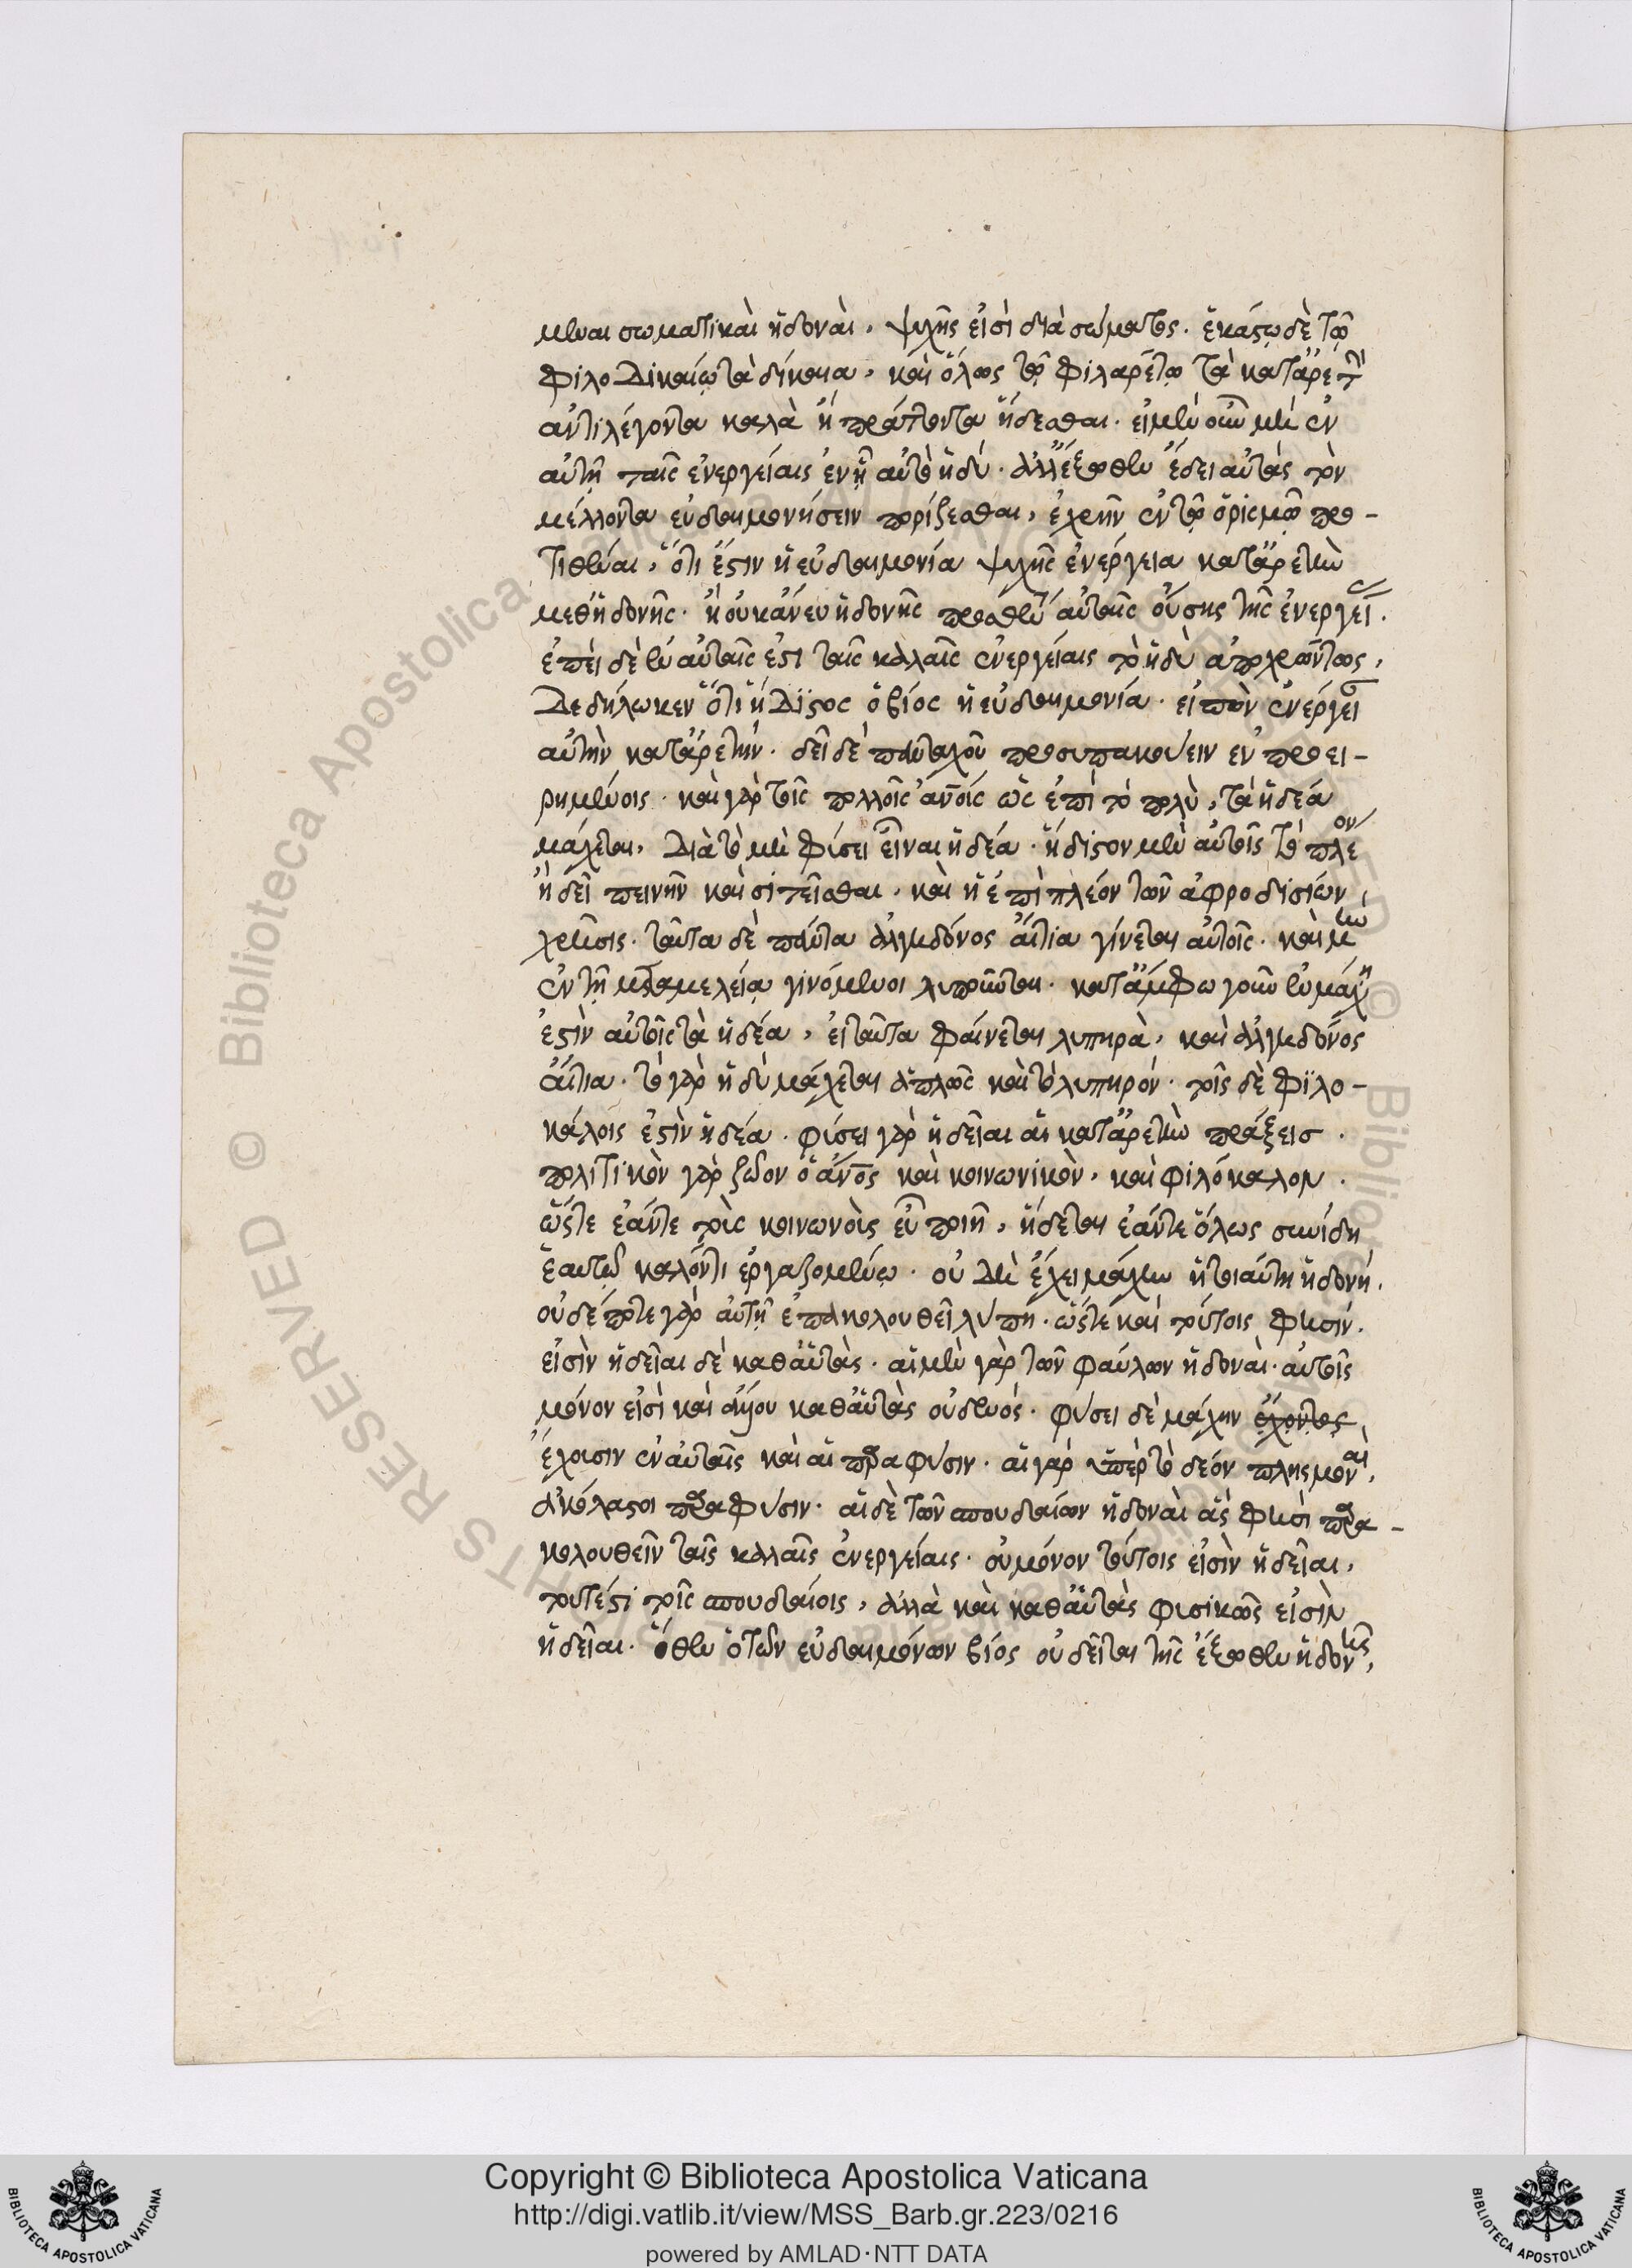 μεναι σωματικαὶ ἡδοναὶ, ψυχῆς εἰσὶ διὰ σώματος. ἑκάστω δὲ τῶ
φιλοδικαίω τὰ δίκαια, καὶ ὅλως τῶ φιλαρέτω τὰ κατ' ἀρετὴ
ἀντιλέγοντα καλὰ ἢ πράττοντα ἥδεσθαι. εἰ μὲν οὖν μὴ ἐν
αὐτῆ ταῖς ἐνεργείαις ἐνῆ αὐτὸ ἡδύ. ἀλλ' ἔξωθεν ἔδει αὐτὰς τὸν
μέλλοντα εὐδαιμονήσειν πορίζεσθαι, ἐχρῆν ἐν τῶ ὁρισμῶ προ-
τιθέναι, ὅτι ἔστιν ἡ εὐδαιμονία ψυχῆς ἐνέργεια κατ' ἀρετὴν
μεθ' ἡδονῆς. ἢ οὐκ ἄνευ ἡδονῆς προσθεν αὐταῖς οὔσης τῆς ἐνεργεί.
ἐπεὶ δὲ ἐν αὐταῖς ἐστι ταῖς καλαῖς ἐνεργείαις τὸ ἡδὺ ἀποχρώντως,
δεδήλωκεν ὅτι ἥδιστος ὁ βίος ἡ εὐδαιμονία. εἰπὼν ἐνέργει
αὐτὴν κατ' ἀρετήν. δεῖ δὲ πανταχοῦ προσυπακούειν ἐν προει-
ρημένοις. καὶ γὰρ τοῖς πολλοῖς ἀνοις ὡς ἐπὶ τὸ πολὺ, τὰ ἡδέα
μάχεται, διὰ τὸ μὴ φύσει εἶναι ἡδέα. ἥδιστον μὲν αὐτοῖς τὸ πλέον
ἢ δεῖ πεινῆν καὶ σιτεῖσθαι, καὶ ἡ ἐπὶ πλέον τῶν ἀφροδισίων
χρῆσις. ταῦτα δὲ πάντα ἀλγηδόνος αἴτια γίνεται αὐτοῖς. καὶ μὴν
ἐν τῆ μεταμελεία γινόμενοι λυποῦνται. κατ' ἄμφω γοῦν ἐν μάχη
ἐστὶν αὐτοῖς τὰ ἡδέα, εἰ ταῦτα φαίνεται λυπηρὰ, καὶ ἀλγηδόνος
αἴτια. τὸ γὰρ ἡδὺ μάχεται ἁπλῶς καὶ τὸ λυπηρόν. τοῖς δὲ φιλο-
κάλοις ἐστὶν ἡδέα. φύσει γὰρ ἡδεῖαι αἱ κατ' ἀρετὴν πράξεισ.
πολιτικὸν γὰρ ζῶον ὁ ἄνος καὶ κοινωνικὸν, καὶ φιλόκαλον.
ὥστε ἐάντε τοὺς κοινωνοὺς εὖ ποιῆ, ἥδεται ἐάντε ὅλως συνίδη
ἑαυτῶ καλόντι ἐργαζομένω. οὐ δὴ ἔχει μάχην ἡ τοιαύτη ἡδονή.
οὐδέποτε γὰρ αὐτῆ ἐπακολουθεῖ λύπη. ὥστε καὶ τούτοις φησίν.
εἰσὶν ἡδεῖαι δὲ καθ' αὑτάς. αἱ μὲν γὰρ τῶν φαύλων ἡδοναὶ. αὐτοῖς
μόνον εἰσὶ καὶ καθ' αὑτὰς οὐδενός. φύσει δὲ μάχην ἔχοντες
ἔχουσιν ἐν αὐταῖς καὶ αἱ παρα φύσιν. αἱ γὰρ ὑπὲρ τὸ δέον πλησμοναὶ,
ἀκόλαστοι παρα φύσιν. αἱ δὲ τῶν σπουδαίων ἡδοναὶ ἃς φησὶ παρα-
κολουθεῖν ταῖς καλαῖς ἐνεργείαις. οὐ μόνον τούτοις εἰσὶν ἡδεῖαι,
τουτέστι τοῖς σπουδαίοις, ἀλλὰ καὶ καθ' αὑτὰς φυσικῶς εἰσὶν
ἡδεῖαι. ὅθεν ὁ τῶν εὐδαιμόνων βίος οὐ δεῖται τῆς ἔξωθεν ἡδονῆς,
Copyright © Biblioteca Apostolica Vaticana
http://digi.vatlib.it/view/MSS_Barb.gr.223/0216
powered by AMLAD·NTT DATA